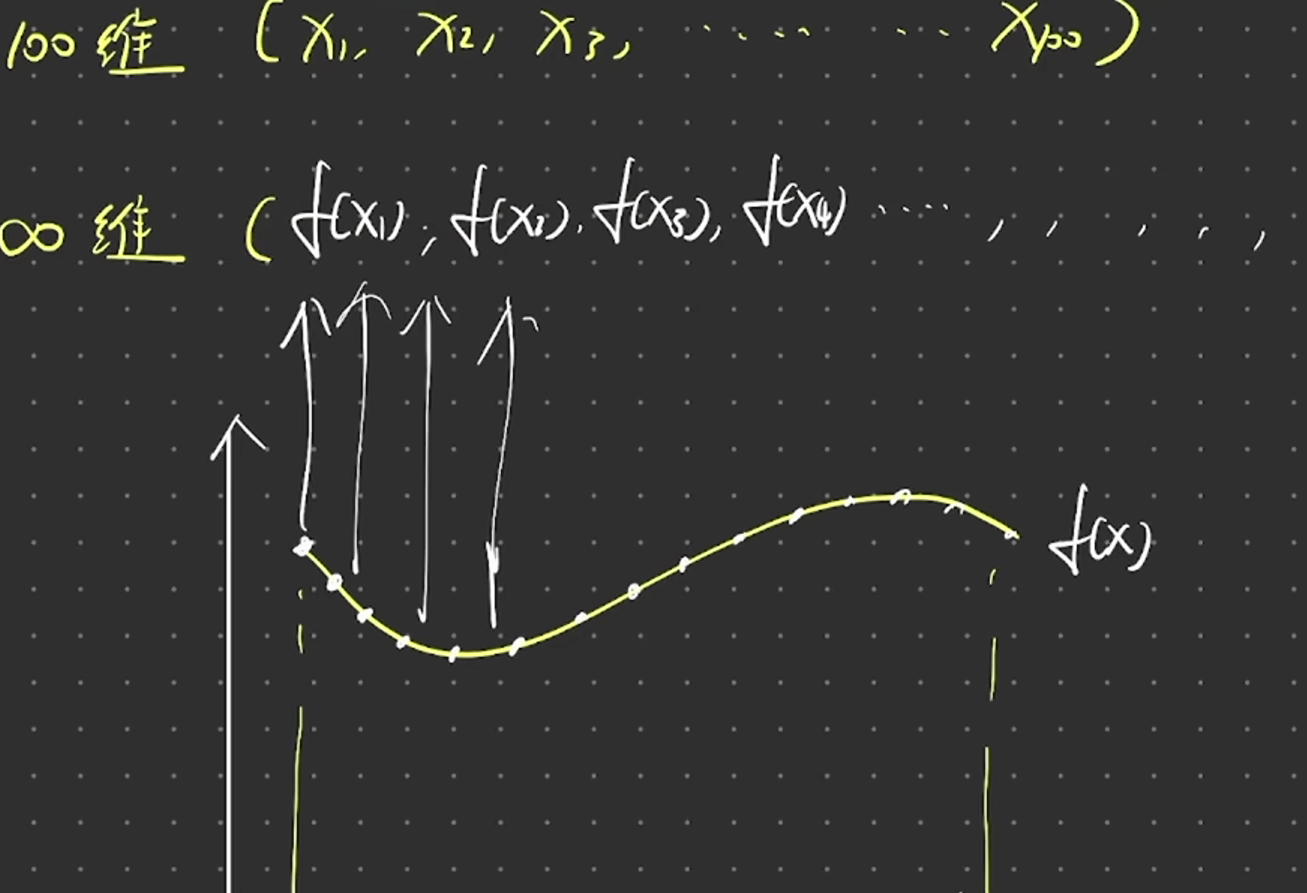 100维 (x₁, x₂, x₃, ········ x₁₀₀)
∞维 (f(x₁), f(x₂), f(x₃), f(x₄) ·····, , , , ,
f(x)